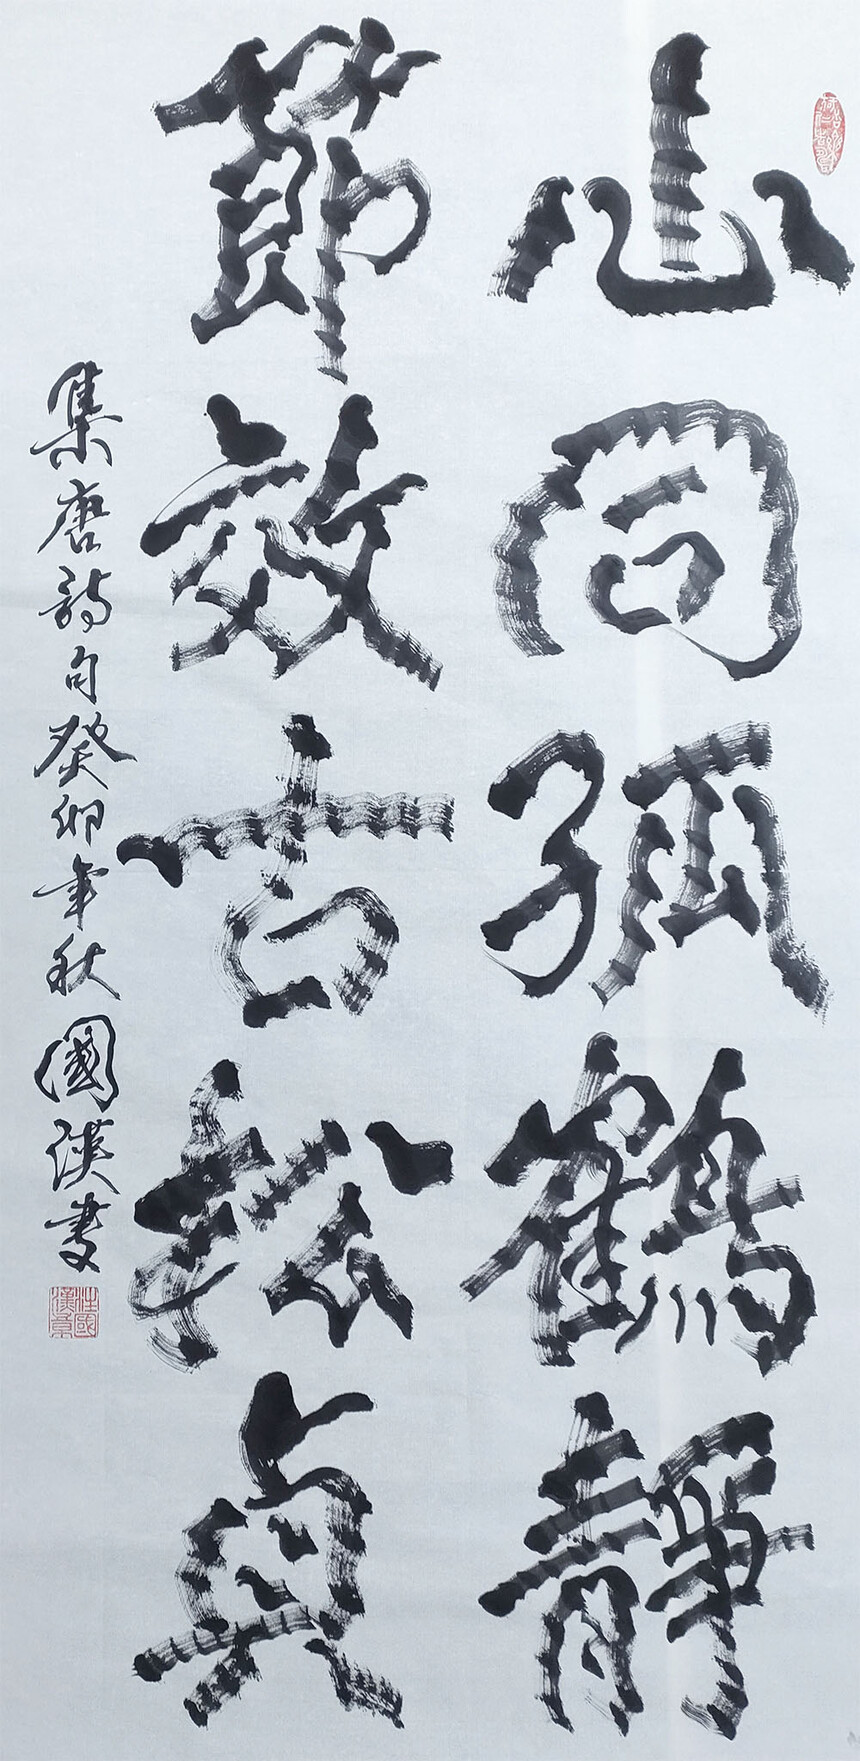 心同孤鶴靜
節效古松貞
集唐詩句癸卯年秋國漢書
汪國
漢章